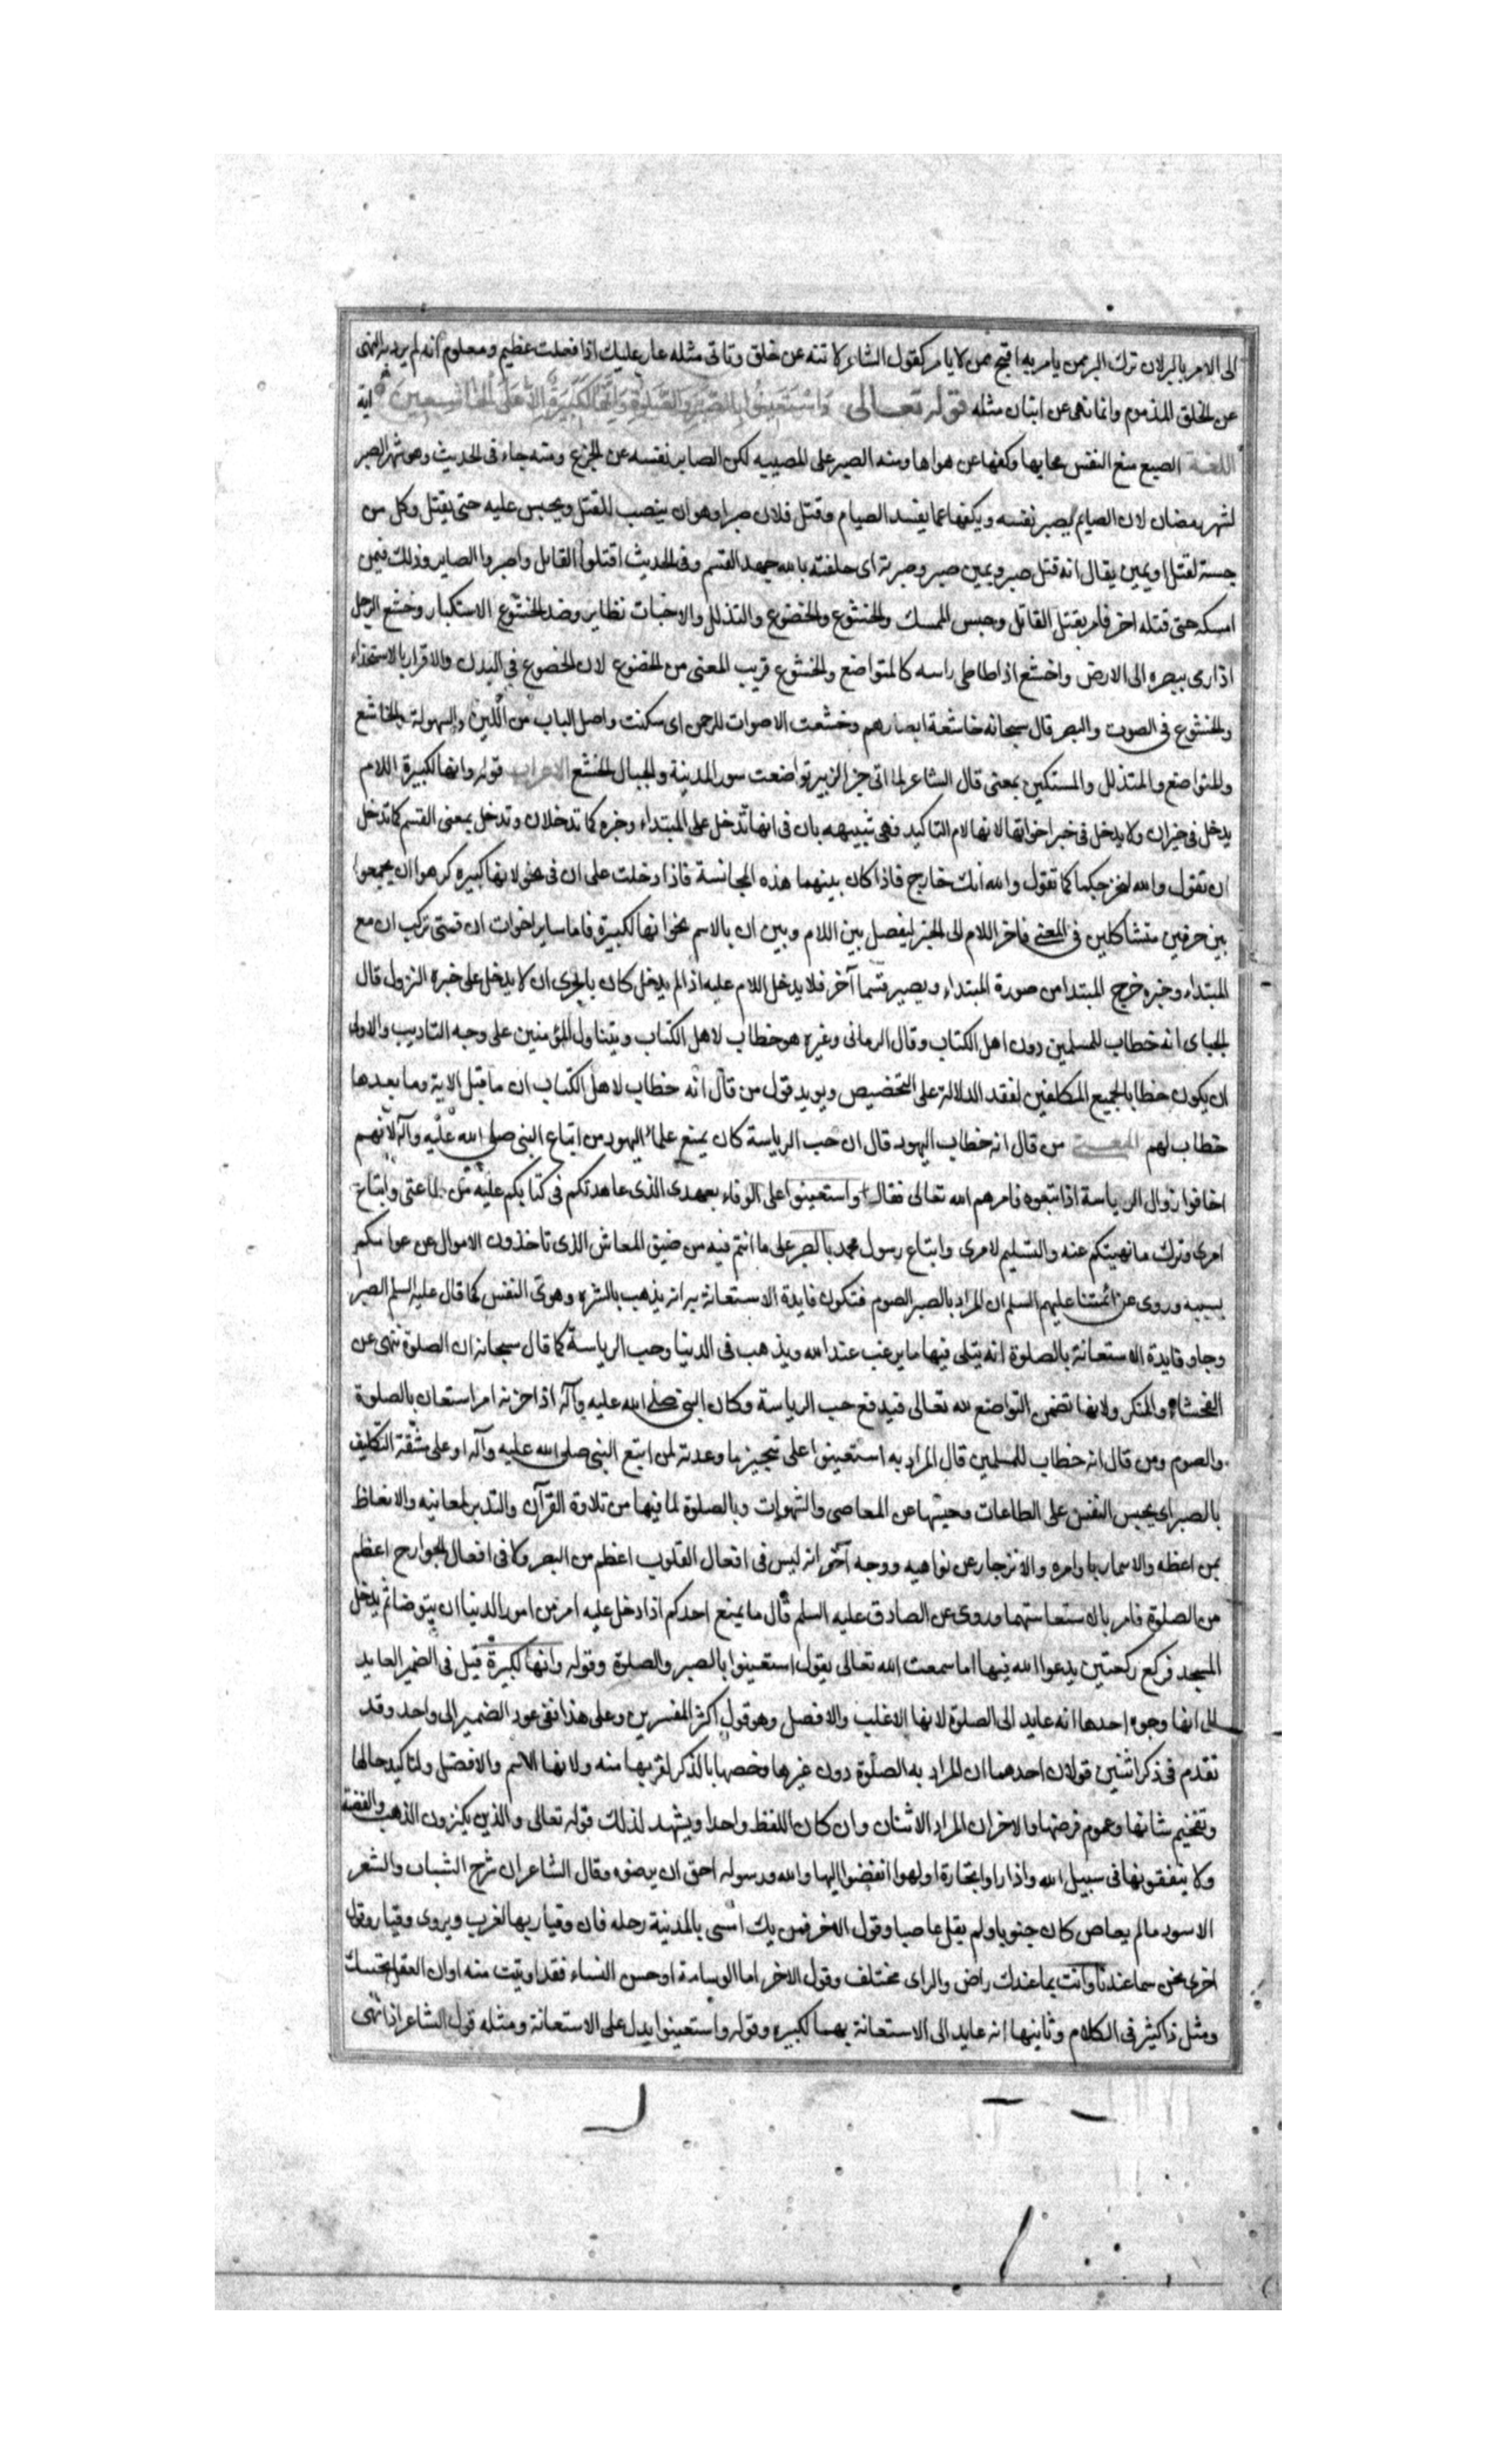 الى الامر بالبر لان ترك البر ممن يامر به اقبح ممن لا يامر كقول الشاعر لا تنه عن خلق وتاتى مثله عار عليك اذا فعلت عظيم ومعلوم انه لم يرد به النهى
عن الخلق المذموم وانما نهى عن اتيان مثله قوله تعالى وَاسْتَعِينُوا بِالصَّبْرِ وَالصَّلٰوةِ وَاِنَّهَا لَكَبِيرَةٌ اِلَّا عَلَى الْخَاشِعِينَ اية
اللغة الصبع منع النفس محابها وكفها عن هواها ومنه الصبر على المصيبه لكن الصابر نفسه عن الجزع ومنه جاء فى الحديث وهو شهر الصبر
لشهر رمضان لان الصايم يصبر نفسه ويكفها عما يفسد الصيام وقتل فلان صبرا وهو ان ينصب للقتل ويحبس عليه حتى يقتل وكل من
حبسته لقتل او يمين يقال انه قتل صبر ويمين صبر وصبرته اى حلفته بالله جهد القسم وفى الحديث اقتلوا القاتل واصبروا الصابر وذلك فيمن
امسكه حتى قتله اخر فامر بقتل القاتل وحبس الممسك والخشوع والخضوع والتذلل والاخبات نظاير وضد الخشوع الاستكبار وخشع الرجل
اذا رمى ببصره الى الارض واخشع اذا طاطى راسه كالمتواضع والخشوع قريب المعنى من الخضوع لان الخضوع فى البدن والاقرار بالاستخذاء
والخشوع فى الصوت والبصر قال سبحانه خاشعة ابصارهم وخشعت الاصوات للرحمن اى سكنت واصل الباب من اللين والسهولة والخاشع
والمتواضع والمتذلل والمستكين بمعنى قال الشاعر لما اتى خبر الزبير تواضعت سور المدينة والجبال الخشع الاعراب قوله وانها لكبيرة اللام
يدخل فى خبر ان ولا يدخل فى خبر اخواتها لانها لام التاكيد فهى شبيهه بان فى انها تدخل على المبتداء وخبره كما تدخلان وتدخل بمعنى القسم كما تدخل
ان تقول والله كما تقول والله انك خارج فاذا كان بينهما هذه المجانسة فاذا دخلت على ان فى نحو لانها كبيره كرهوا ان يجمعوا
بين حرفين متشاكلين فى المعنى فاخر اللام الى الخبر ليفصل بين اللام وبين ان بالاسم نحو انها لكبيرة فاما ساير اخوات ان فمتى تركب ان مع
المبتداء وخبره خرج المبتدا من صورة المبتداء ويصير قسما آخر فلا يدخل اللام عليه اذا لم يدخل كان بالحرى ان لا يدخل على خبره النزول قال
الجباى انه خطاب للمسلمين دون اهل الكتاب وقال الرمانى وغيره هو خطاب لاهل الكتاب ويتناول المؤمنين على وجه التاديب والاولى
ان يكون خطابا لجميع المكلفين لفقد الدلالة على التخصيص ويويد قول من قال انه خطاب لاهل الكتاب ان ما قبل الاية وما بعدها
خطاب لهم المعنى من قال انه خطاب اليهود قال ان حب الرياسة كان يمنع علماء اليهود من اتباع النبى صلى الله عليه وآله لانهم
اخافوا زوال الرياسة اذا اتبعوه فامرهم الله تعالى فقال واستعينوا على الوفاء بعهدى الذى عاهدتكم فى كتابكم عليه من طاعتى واتباع
امرى وترك ما نهيتكم عنه والتسليم لامرى واتباع رسول محمد بالصبر على ما انتم فيه من ضيق المعاش الذى تاخذون الاموال عن عوامكم
بسببه وروى عن ائمتنا عليهم السلم ان المراد بالصبر الصوم فتكون فايدة الاستعانة به انه يذهب بالشره وهوى النفس كما قال عليه السلم الصبر
وجاء وفايدة الاستعانة بالصلوة انه يتلى فيها ما يرغب عند الله ويذهب فى الدنيا وحب الرياسة كما قال سبحانه ان الصلوة تنهى عن
الفحشاء والمنكر ولانها تضمن التواضع لله تعالى فيدفع حب الرياسة وكان النبى صلى الله عليه وآله اذا حزنه امر استعان بالصلوة
والصوم ومن قال انه خطاب للمسلمين قال المراد به استعينوا على تنجيز ما وعدته لمن اتبع النبى صلى الله عليه وآله او على مشقة التكليف
بالصبر اى بحبس النفس على الطاعات وحبسها عن المعاصى والشهوات وبالصلوة لما فيها من تلاوة القرآن والتدبر لمعانيه والاتعاظ
بمواعظه والايتمار باوامره والانزجار عن نواهيه ووجه آخر انه ليس فى افعال القلوب اعظم من الصبر ولا فى افعال الجوارح اعظم
من الصلوة فامر بالاستعانة بهما وروى عن الصادق عليه السلم قال ما يمنع احدكم اذا دخل عليه امر من امور الدنيا ان يتوضا ثم يدخل
المسجد فركع ركعتين يدعوا الله فيها اما سمعت الله تعالى يقول استعينوا بالصبر والصلوة وقوله وانها لكبيرة قيل فى الضمير العايد
الى انها وجوه احدها انه عايد الى الصلوة لانها الاغلب والافضل وهو قول اكثر المفسرين وعلى هذا ففى عود الضمير الى واحد وقد
تقدم فى ذكر اثنين قولان احدهما ان المراد به الصلوة دون غيرها وخصها بالذكر لقربها منه ولانها الاهم والافضل ولتاكيد حالها
وتفخيم شانها وعموم فرضها والاخر ان المراد الاثنان وان كان اللفظ واحدا ويشهد لذلك قوله تعالى والذين يكنزون الذهب والفضة
ولا ينفقونها فى سبيل الله واذا راوا تجارة او لهوا انفضوا اليها والله ورسوله احق ان يرضوه وقال الشاعر ان شرخ الشباب والشعر
الاسود ما لم يعاص كان جنونا ولم يقل عاصيا وقول الاخر فمن يك امسى بالمدينة رحله فان وقيار بها لغريب ويروى وقيارا وقول
اخر نحن بما عندنا وانت بما عندك راض والراى مختلف وقول الاخر اما الوسامة او حسن النساء فقد اوتيت منه اوان العقل محتنك
ومثل ذا كثير فى الكلام وثانيها انه عايد الى الاستعانة بهما لكبيره وقوله واستعينوا يدل على الاستعانة ومثله قول الشاعر اذا نهى